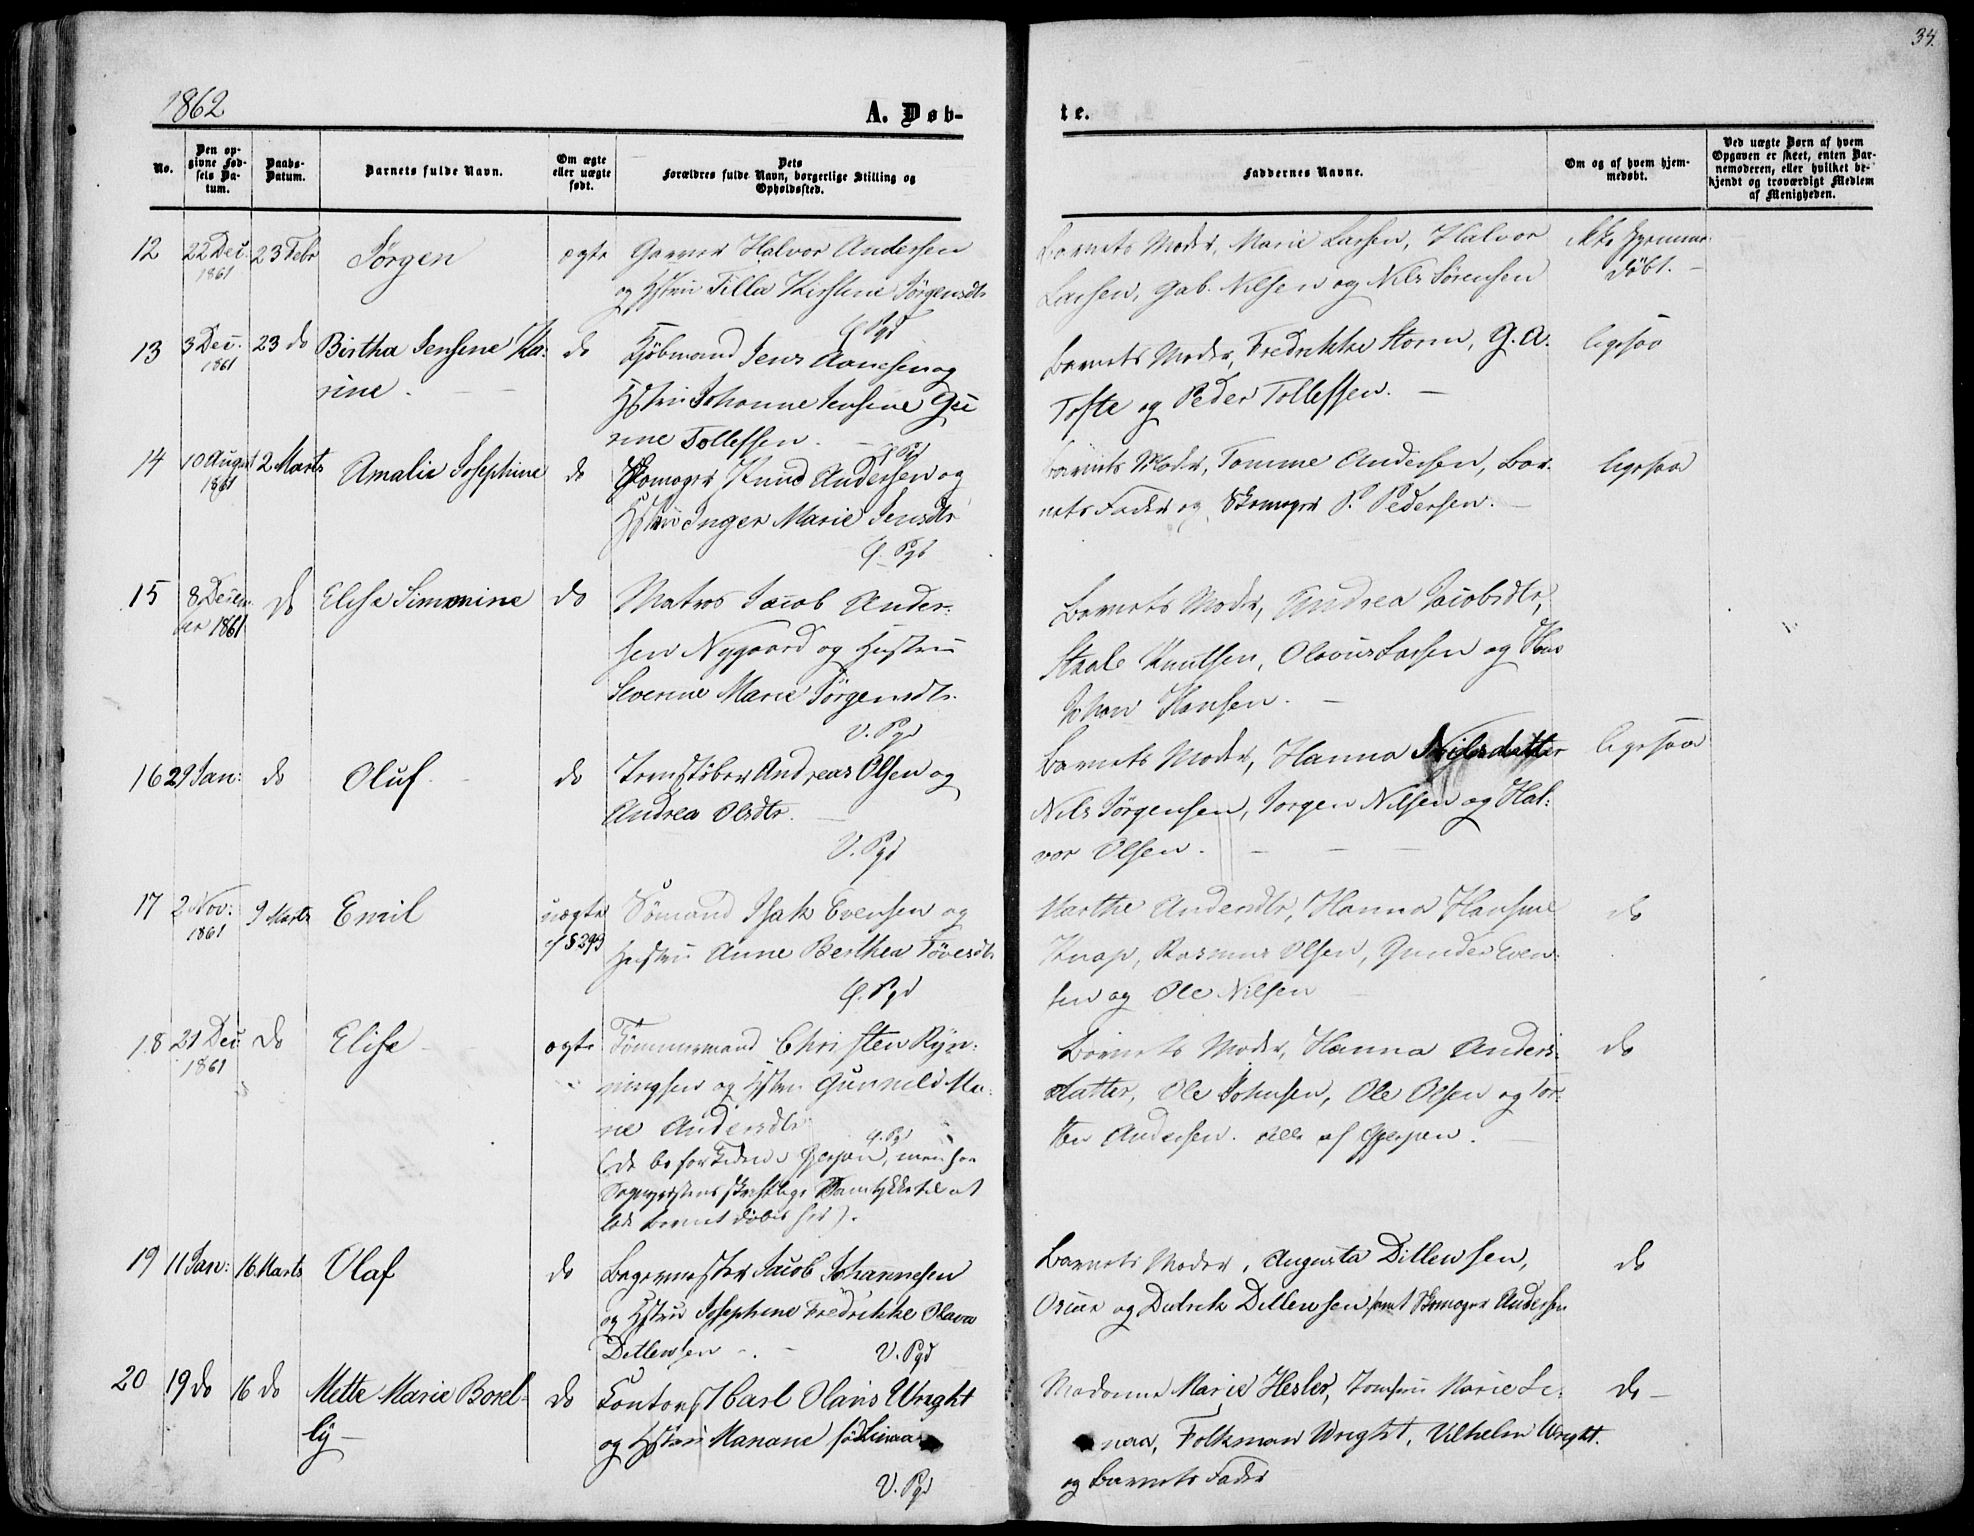 34.
1862
A. Døb-
te.
No.
Den op-
givne Fød-
sels Da-
tum.
Daabs-
Datum.
Barnets fulde Navn.
Om ægte
eller uægte
født.
Dets
Forældres fulde Navn, borgerlige Stilling og
Opholdssted.
Faddernes Navne.
Om og af hvem hjem-
medøbt.
Ved uægte Børn af hvem
Opgaven er skeet, enten Bar-
nemoderen, eller hvilket be-
kjendt og troværdigt Medlem
af Menigheden.
12 22 Dec. 23 Febr Jørgen ægte Garver Halvor Andersen
1861
og Hstru Tilla Kirstine Jørgensdtr
Ø Pgd
Barnets Moder, Marie Larsen, Halvor
Larsen, Gab. Nilsen og Nils Sørensen
ikke hjemme
døbt. -
13 3 Dec. 23 do Birtha Jensine Ka- do Kjøbmand Jens Aanesen og
1861
rine. Hstru Johanne Jensine Gu
rine Tollefsen. -
Ø Pgd
Barnets Moder, Fredrikke Storm, G. A.
Tofte og Peder Tollefsen. -
ligesaa
14 10 August 2 Marts Amalie Josephine do Skomager Knud Andersen og
1861
Hstru Inger Marie Jensdtr
Ø. Pgd
Barnets Moder, Tomme Andersen, Bar-
nets Fader og Skomager P. Pedersen. -
ligesaa
15 8 Decem- do Elise Simmine do Matros Jacob Ander-
ber 1861
sen Nygaard og Hustru
Severine Marie Jørgensdtr.
V. Pgd
Barnets Moder, Andrea Jacobsdtr,
Staale Knutsen, Olavus Larsen og Hans
Johan Hansen. -
16 29 Jan: do Oluf do Jernstøber Andreas Olsen og
Andrea Olsdtr. -
V. Pgd
Barnets Moder, Hanna Nilsdatter
Nils Jørgensen, Jørgen Nilsen og Hal-
vor Olsen. - - -
ligesaa
17 2 Nov: 9 Marts Emil uægte Sømand Isak Evensen og
1861
Hustru Anne Berthea Tovesdtr
Ø. Pgd
Marthe Andersdtr, Hanna Hansine
Knap, Rasmus Olsen, Gunder Even-
sen og Ole Nilsen
do
18 21 Dec do Elise ægte Tømmermand Christen Ryn-
1861
ningsen og Hstru Gunnild Ma-
rie Andersdtr
Ø. Pgd
(de bo for Tiden i Gjerpen, men har
Sognepræstens skriftlige Samtykke til at
lade Barnet døbes her).
Barnets Moder, Hanna Anders-
datter, Ole Johnsen, Ole Olsen og Tor-
sten Andersen. Alle af Gjerpen.
do
19 11 Jan: 16 Marts Olaf do Bagermester Jacob Johannesen
og Hstru Josephine Fredrikke Olava
Ditlevsen - . - V. Pgd
Barnets Moder, Augusta Ditlevsen,
Oscar og Didrik Ditlevsen samt Skomager Andersen
do
20 19 do 16 do Mette Marie Borel- do Kontorist Karl Olavis Wright
ly - og Hstru Manane født
V. Pgd
Madame Marie Hesler, Jomfru Marie Li-
naa, Folkman Wright, Vilhelm Wright.
og Barnets Fader
do -